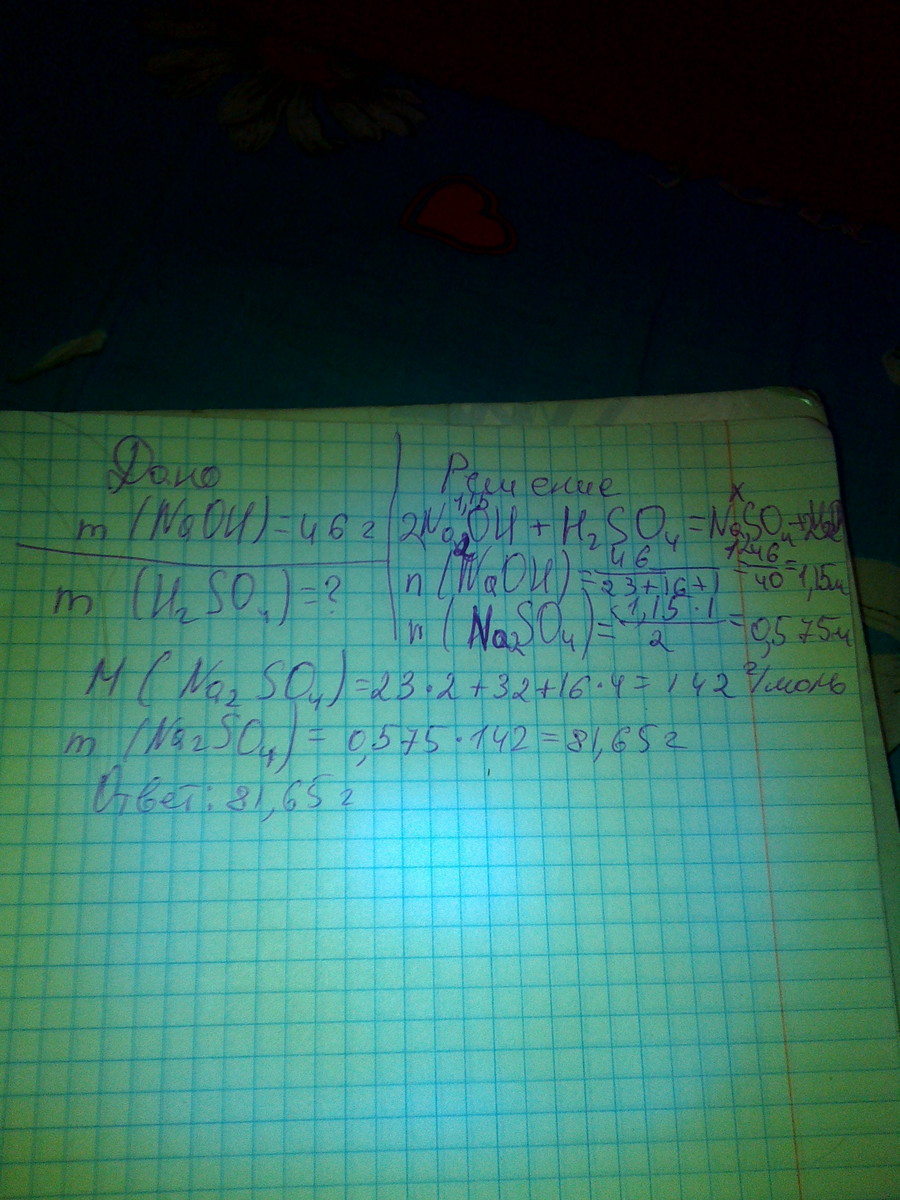 Дано
m (NaOH) = 46 г
m (H₂SO₄) = ?
Решение
1,15 x
2NaOH + H₂SO₄ = Na₂SO₄ +
n (NaOH) = 46 / 23+16+1 = 46 / 40 = 1,15м
n (Na₂SO₄) = 1,15 · 1 / 2 = 0,575м
M (Na₂SO₄) = 23·2+32+16·4 = 142 г/моль
m (Na₂SO₄) = 0,575·142 = 81,65 г
Ответ: 81,65 г